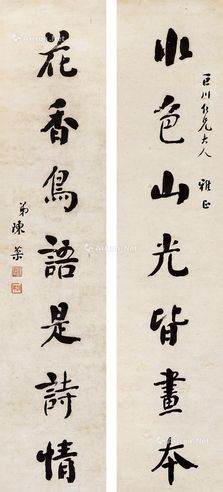 巨川仁兄大人 雅正
水色山光皆畫本
花香鳥語是詩情
弟陳